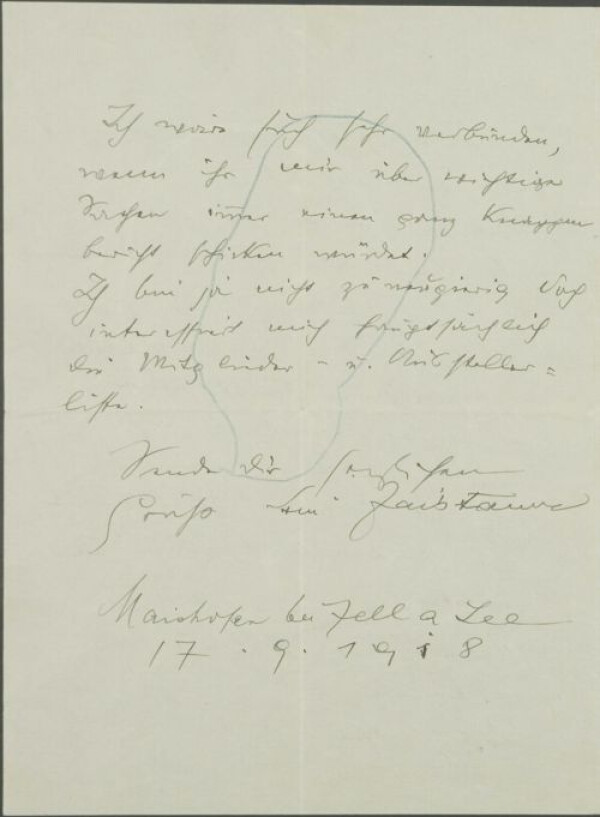 Ich wäre Euch sehr verbunden,
wenn ihr mir über wichtige
Sachen immer einen ganz knappen
bericht schicken würdet.
Ich bin ja nicht zu neugierig doch
interessiert mich hauptsächlich
die Mitglieder - u. Aussteller =
liste.
Sende dir herzlichen
Grüße Dein Faistauer
Maishofen bei Zell a See
17 . 9 . 1918